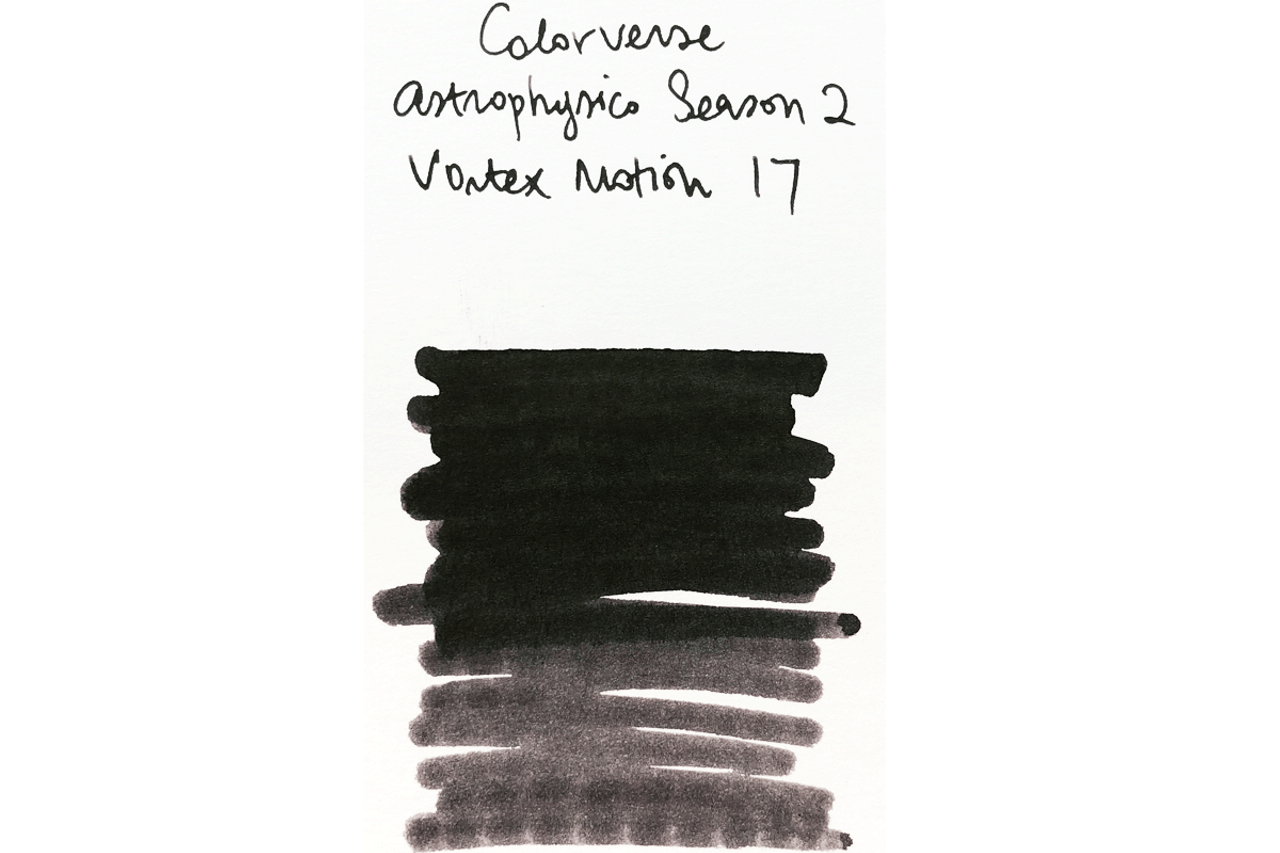 Colorverse
Astrophysics Season 2
Vortex Motion 17